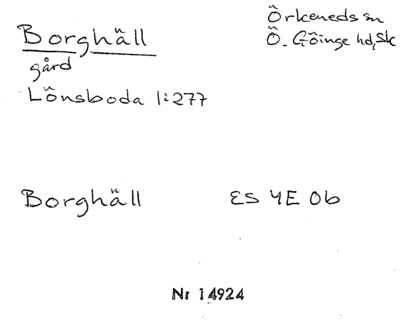 Borghäll
Örkeneds sn
Ö. Göinge hd, Sk
gård
Lönsboda 1:277
Borghäll ES 4E 0b
Nr 14924